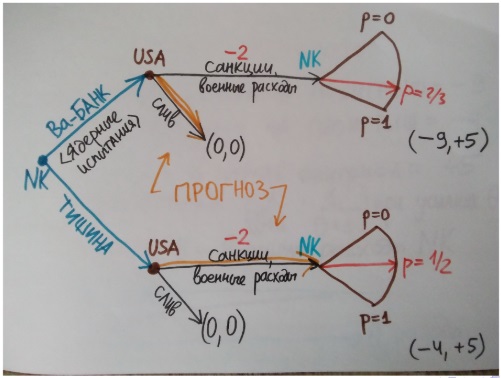 P=0
USA
-2
NK
Санкции,
военные расходы
P=2/3
P=1
Ва-БАНК
(Ядерные
испытания)
слив
(0,0)
(-9,+5)
NK
ПРОГНОЗ
ТИШИНА
P=0
USA
-2
NK
Санкции,
военные расходы
P=1/2
P=1
слив
(0,0)
(-4,+5)